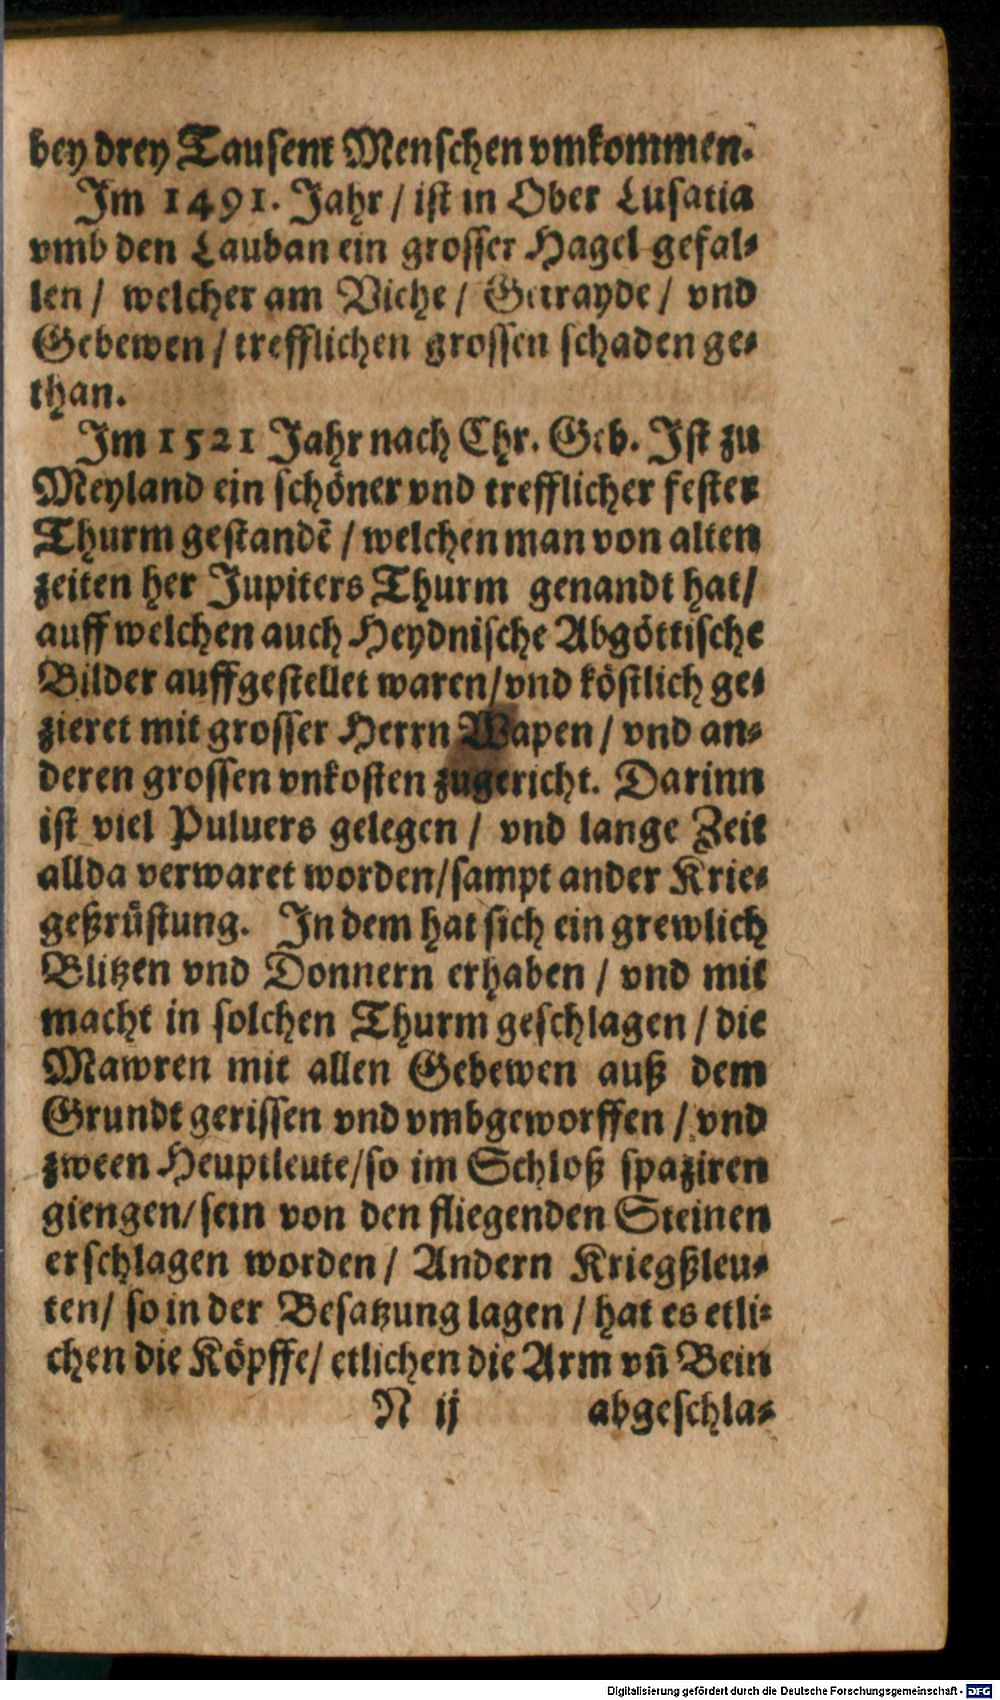 bey drey Tausent Menschen vmkommen.
Im 1491. Jahr / ist in Ober Lusatia
vmb den Lauban ein grosser Hagel gefal-
len / welcher am Viehe / Getrayde / vnd
Gebewen / trefflichen grossen schaden ge-
than.
Im 1521 Jahr nach Chr. Geb. Ist zu
Meyland ein schöner vnd trefflicher fester
Thurm gestandē / welchen man von alten
zeiten her Jupiters Thurm genandt hat/
auff welchen auch Heydnische Abgöttische
Bilder auffgestellet waren/vnd köstlich ge-
zieret mit grosser Herrn Wapen / vnd an-
deren grossen vnkosten zugericht. Darinn
ist viel Puluers gelegen / vnd lange Zeit
allda verwaret worden/sampt ander Krie-
geßrüstung. In dem hat sich ein grewlich
Blitzen vnd Donnern erhaben / vnd mit
macht in solchen Thurm geschlagen / die
Mawren mit allen Gebewen auß dem
Grundt gerissen vnd vmbgeworffen / vnd
zween Heuptleute/so im Schloß spaziren
giengen/sein von den fliegenden Steinen
erschlagen worden/ Andern Kriegßleu-
ten/ so in der Besatzung lagen / hat es etli-
chen die Köpffe/ etlichen die Arm vñ Bein
N ij abgeschla-
Digitalisierung gefördert durch die Deutsche Forschungsgemeinschaft - DFG